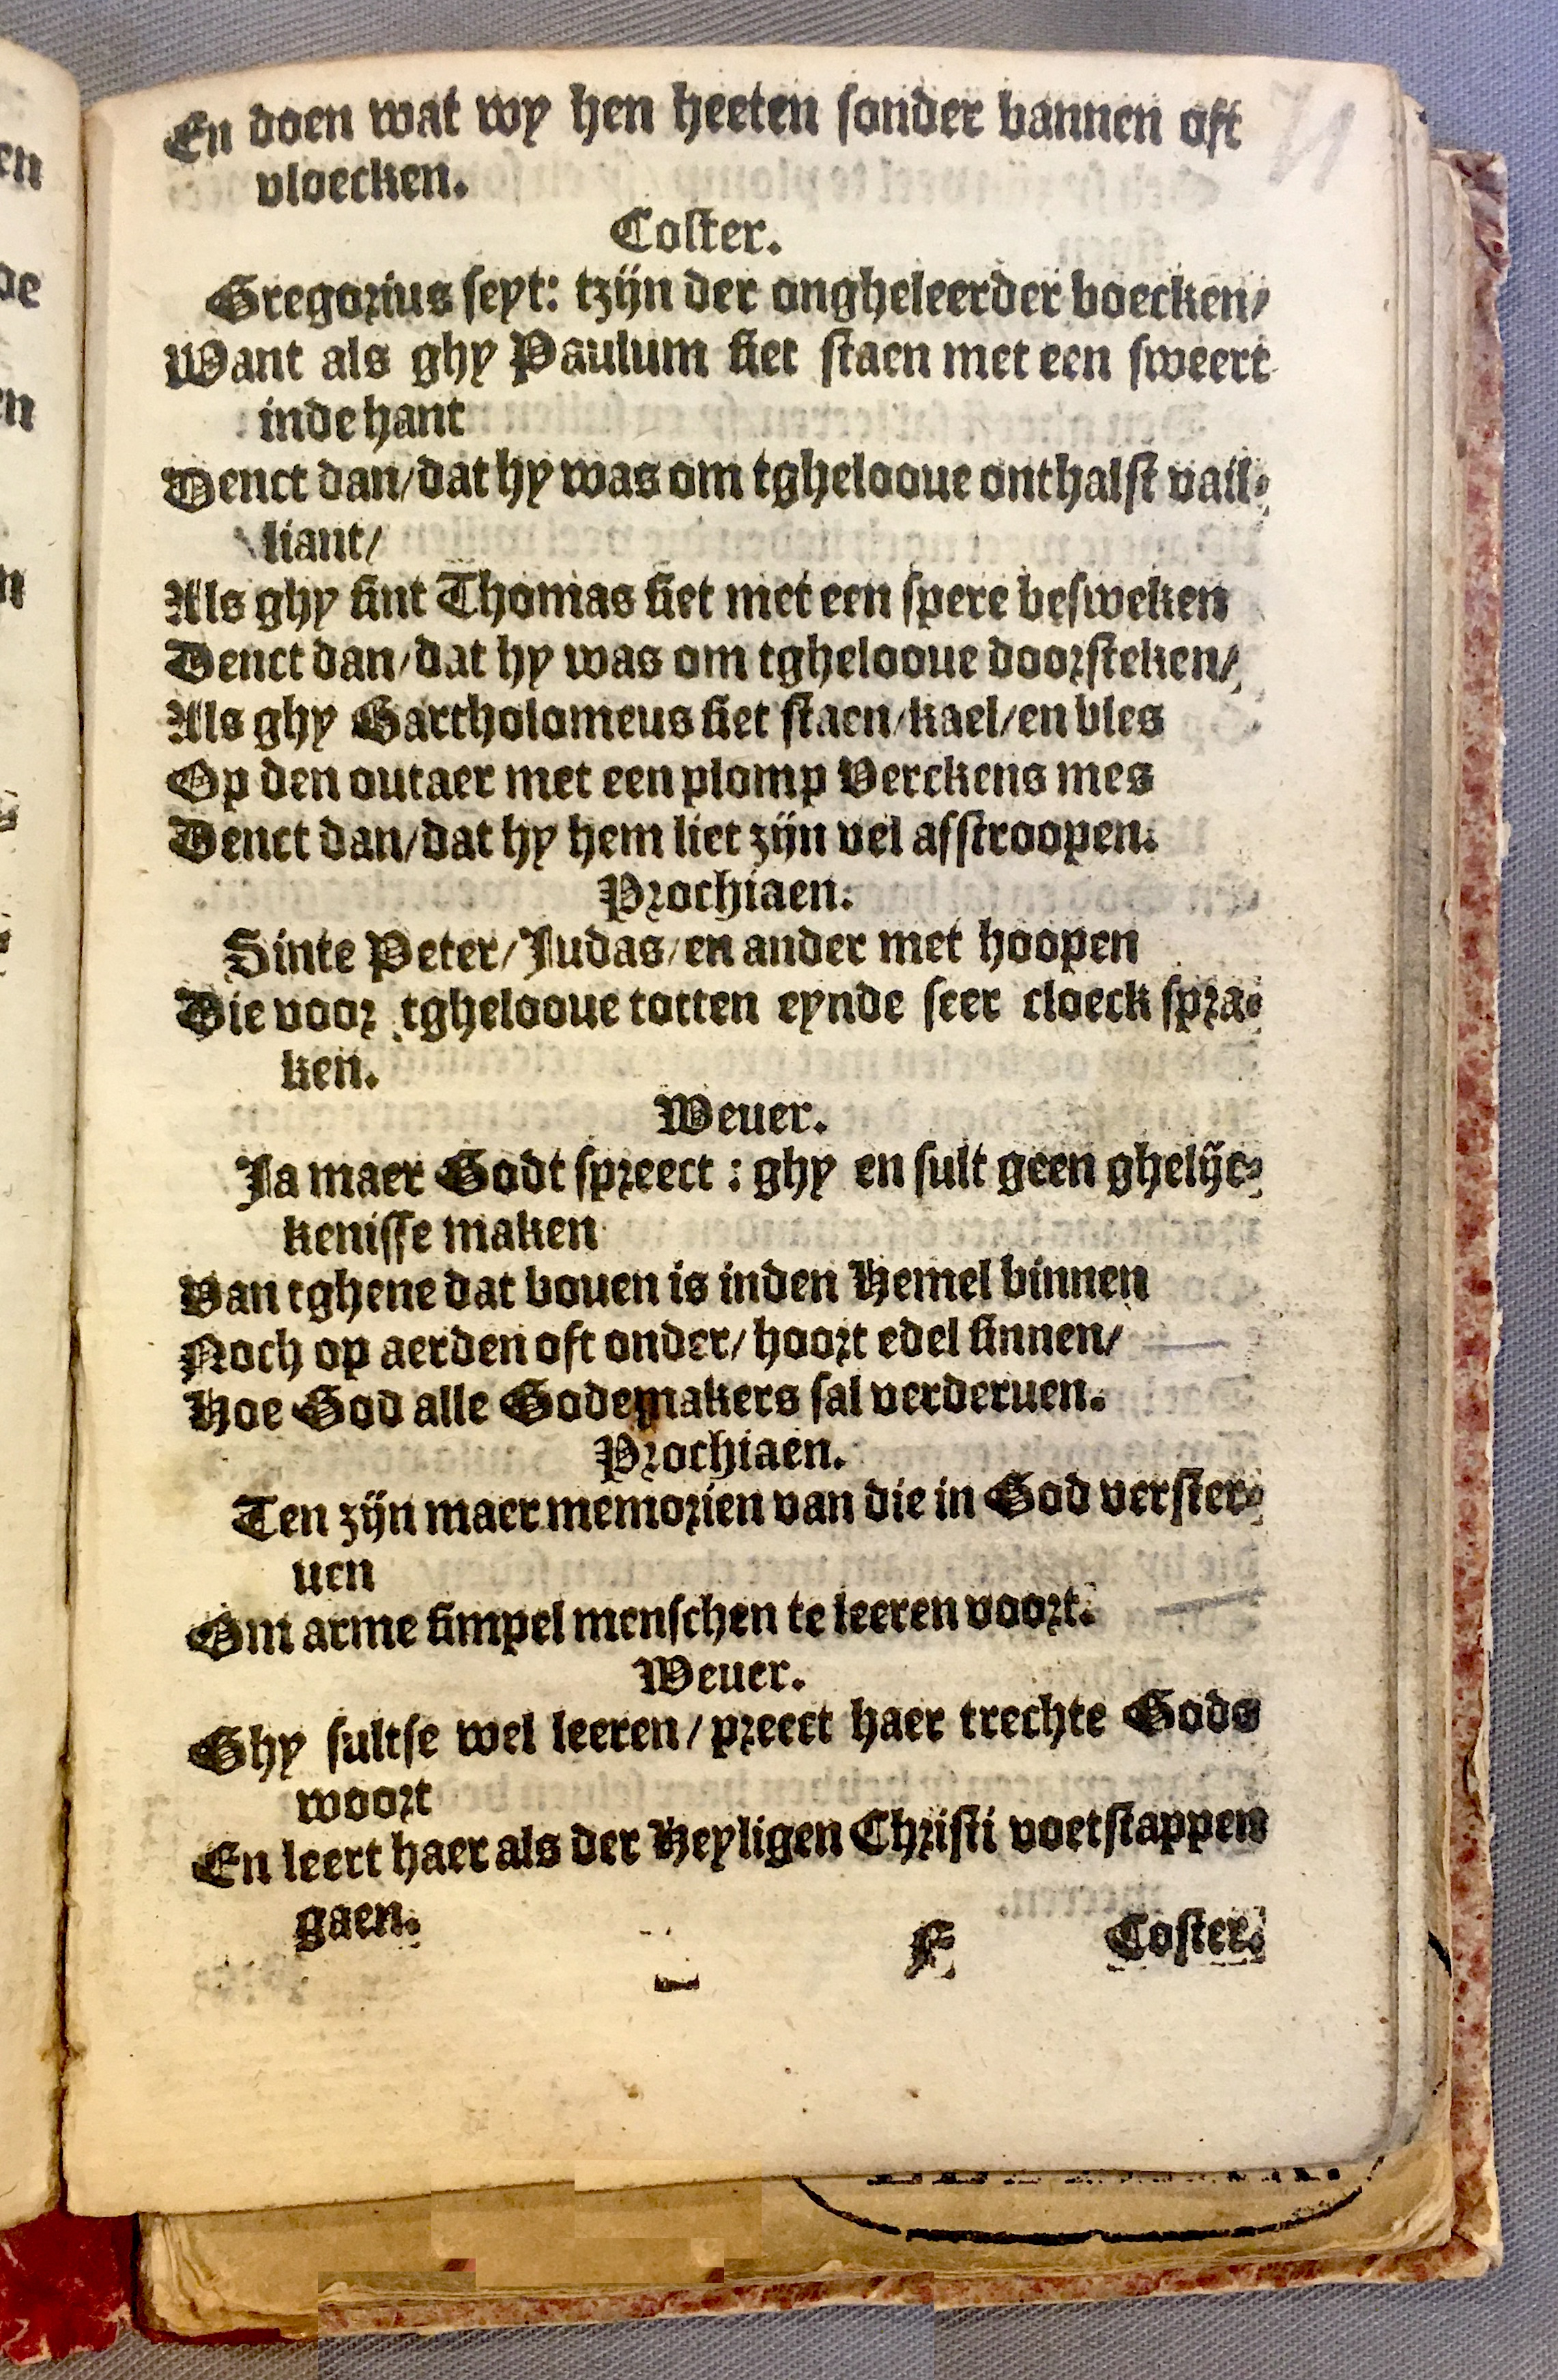 En doen wat wy hen heeten sonder bannen oft
vloecken.
Coster.
Gregorius seyt: tzijn der ongheleerder boecken/
Want als ghy Paulum siet staen met een sweert
inde hant
Denct dan/dat hy was om tghelooue onthalst vail-
liant/
Als ghy sint Thomas siet met een spere besweken
Denct dan/dat hy was om tghelooue doorsteken/
Als ghy Bartholomeus siet staen/kael/en bles
Op den outaer met een plomp Verckens mes
Denct dan/dat hy hem liet zijn vel afstroopen.
Prochiaen.
Sinte Peter/Judas/en ander met hoopen
Die voor tghelooue totten eynde seer cloeck spra-
ken.
Weuer.
Ja maer Godt spreect: ghy en sult geen ghelijc-
kenisse maken
Van tghene dat bouen is inden Hemel binnen
Noch op aerden oft onder/ hoort edel sinnen/
Hoe God alle Godemakers sal verderuen.
Prochiaen.
Ten zijn maer memorien van die in God verster-
uen
Om arme simpel menschen te leeren voort.
Weuer.
Ghy sultse wel leeren/ preect haer trechte Gods
woort
En leert haer als der Heyligen Christi voetstappen
gaen.
F Coster.